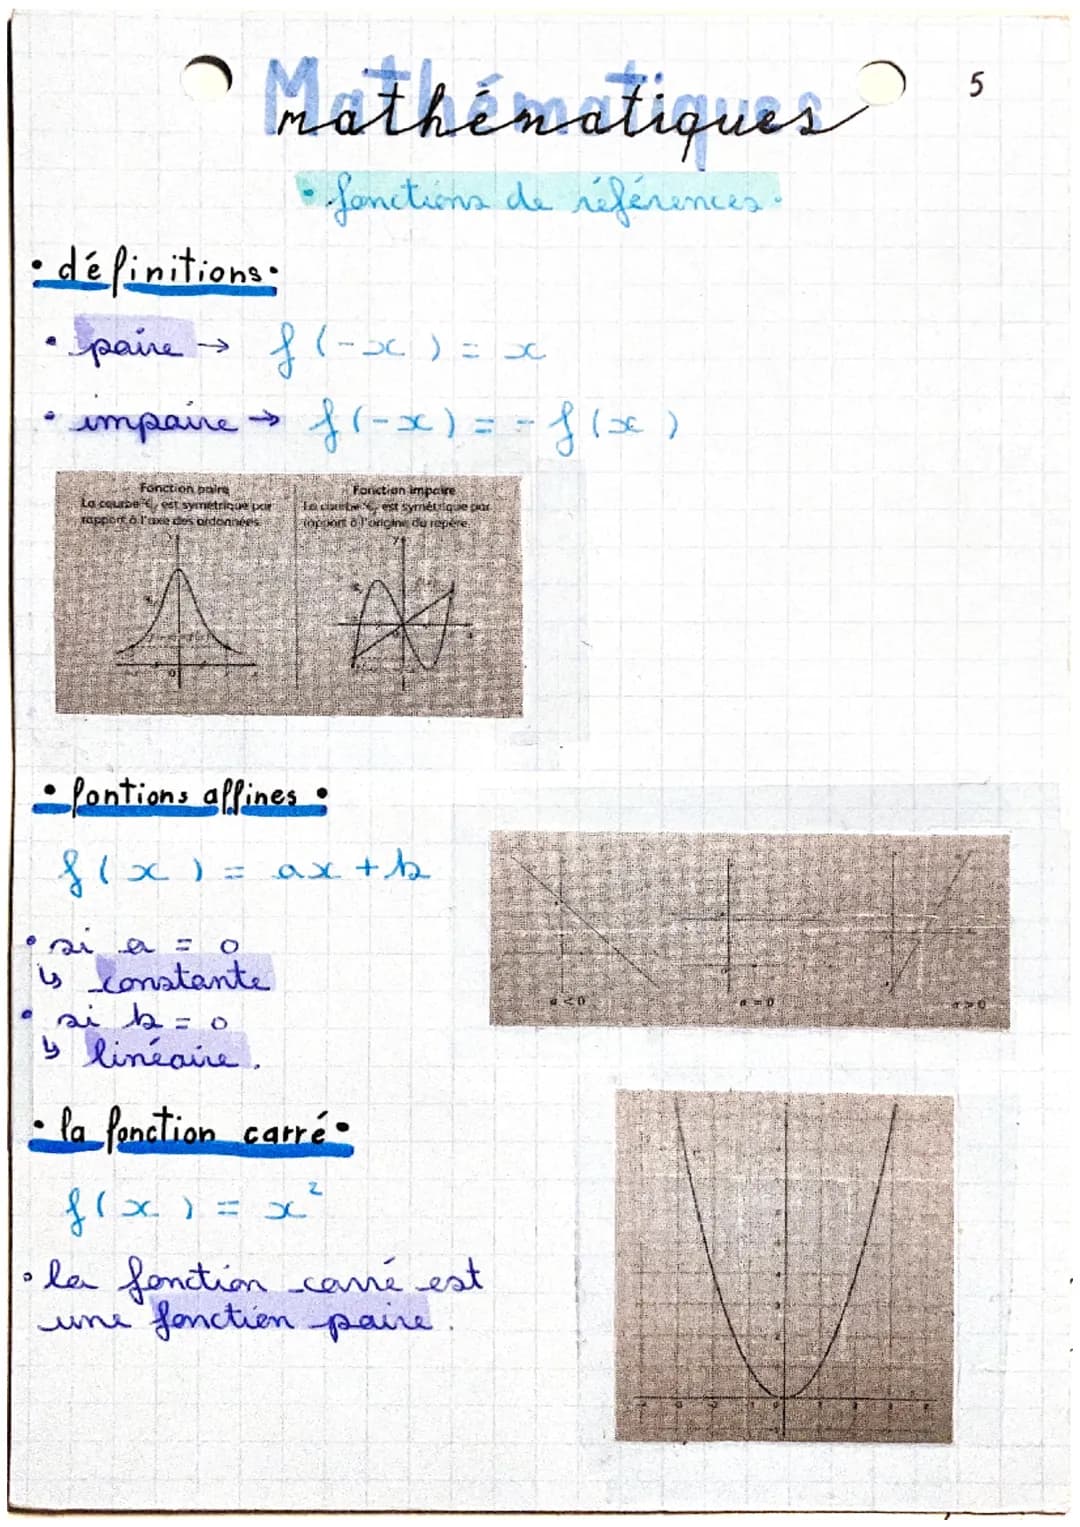 Mathématiques
mathématiques
5
• fonctions de références •
• définitions •
• paire → f(-x) = x
• impaire → f(-x) = -f(x)
Fonction paire
La courbe est symétrique par
rapport à l'axe des ordonnées.
Fonction impaire
La courbe est symétrique par
rapport à l'origine du repère.
• fontions affines •
f(x) = ax + b
• si a = 0
↳ constante
• si b = 0
↳ linéaire.
a < 0
a = 0
a > 0
• la fonction carré •
f(x) = x²
• la fonction carré est
une fonction paire.